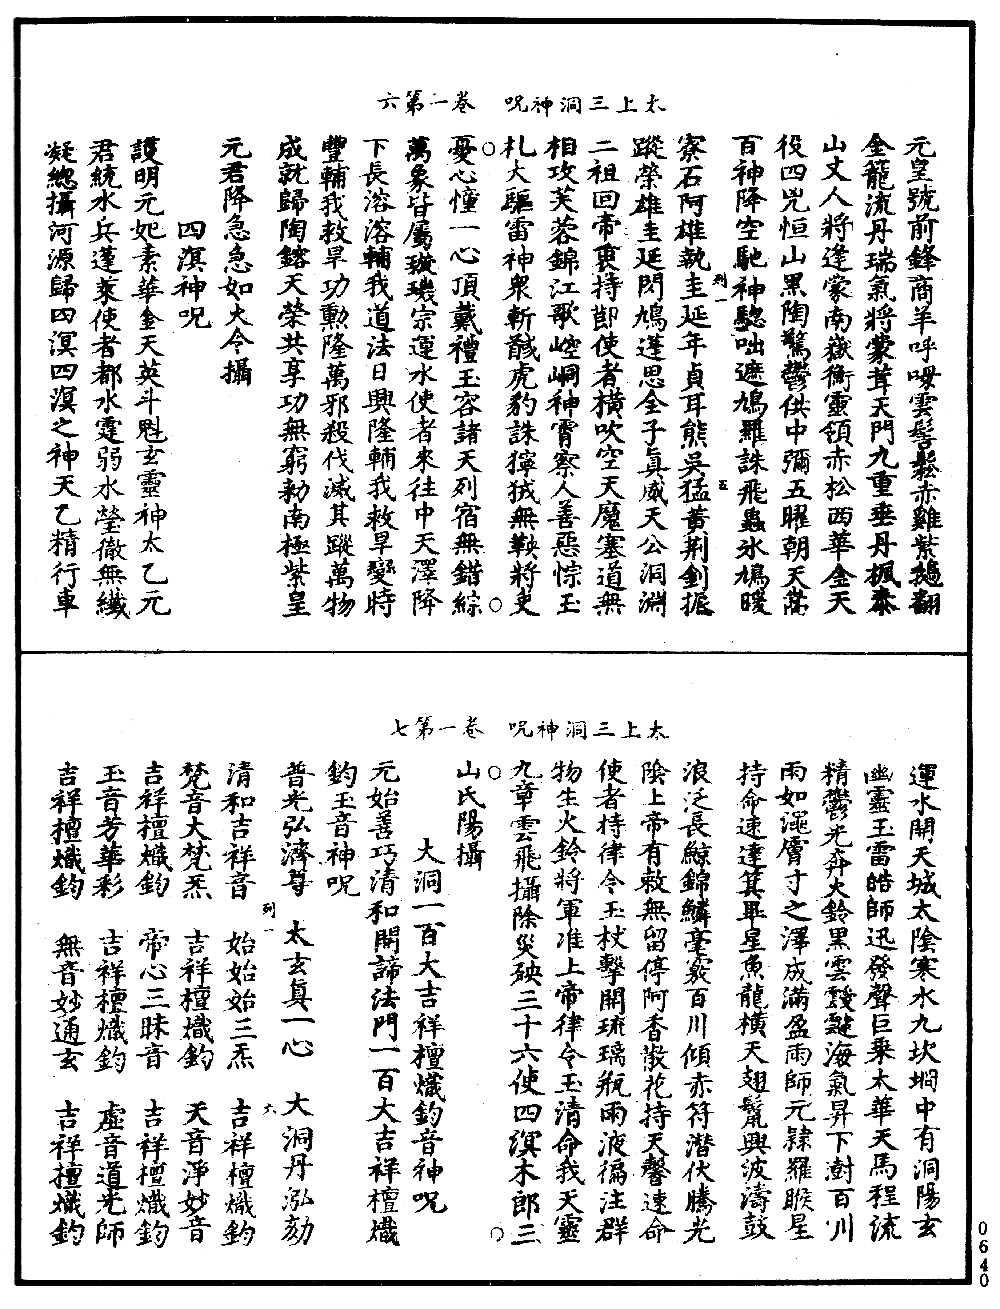 太上三洞神呪　卷一第六
元皇號前鋒商羊呼呣雲髻鬆赤雞紫鵝翻
金籠流丹瑞氣將蒙茸天門九重垂丹楓泰
山丈人將逢蒙南嶽衡靈領赤松西華金天
役四兇恒山黑陶驚鬱供中彌五曜朝天嵩
百神降空馳神騘咄遮鳩羅誅飛蟲氷鳩暖
寮石阿雄執圭延年貞耳熊吳猛黃荆釗振
蹤榮雄圭延閃鳩蓬思全子真威天公洞淵
二祖回帝衷持莭使者橫吹空天魔塞道無
相攻芙蓉錦江歌崆峒神霄察人善惡悰玉
札大驅雷神衆斬馘虎豹誅獰狨無鞅將吏
憂心憧一心頂戴禮玉容諸天列宿無錯綜
萬象皆屬璇璣宗運水使者來往中天澤降
下長溶溶輔我道法日興隆輔我救旱變時
豐輔我救旱功勳隆萬邪殺伐滅其蹤萬物
成就歸陶鎔天榮共享功無窮勑南極紫皇
元君降急急如火令攝
四溟神呪
護明元妃素華金天英斗魁玄靈神太乙元
君統水兵蓬萊使者都水霆弱水瑩徹無纖
凝總攝河源歸四溟四溟之神天乙精行車
列一
五
太上三洞神呪　卷一第七
運水開天城太陰寒水九坎坰中有洞陽玄
幽靈玉雷皓師迅發聲巨乘太華天馬程流
精鬱光奔火鈴黑雲靉靆海氣昇下澍百川
雨如澠膚寸之澤成滿盈雨師元隸羅睺星
持命速達箕畢星魚龍橫天翅鬣興波濤鼓
浪泛長鯨錦鱗毫竅百川傾赤符潛伏騰光
陰上帝有敕無留停阿香散花持天罄速命
使者持律令玉杖擊開琉璃瓶雨液徧注群
物生火鈴將軍准上帝律令玉清命我天靈
九章雲飛攝除災殃三十六使四溟木郎三
山氏陽攝
大洞一百大吉祥檀熾鈞音神呪
元始善巧清和開諦法門一百大吉祥檀熾
鈞玉音神呪
普光弘濟尊　太玄真一心　大洞丹泓劾
清和吉祥音　始始始三炁　吉祥檀熾鈞
梵音大梵炁　吉祥檀熾鈞　天音淨妙音
吉祥檀熾鈞　帝心三昧音　吉祥檀熾鈞
玉音芳華彩　吉祥檀熾鈞　虛音道光師
吉祥檀熾鈞　無音妙通玄　吉祥檀熾鈞
列一
六
0640